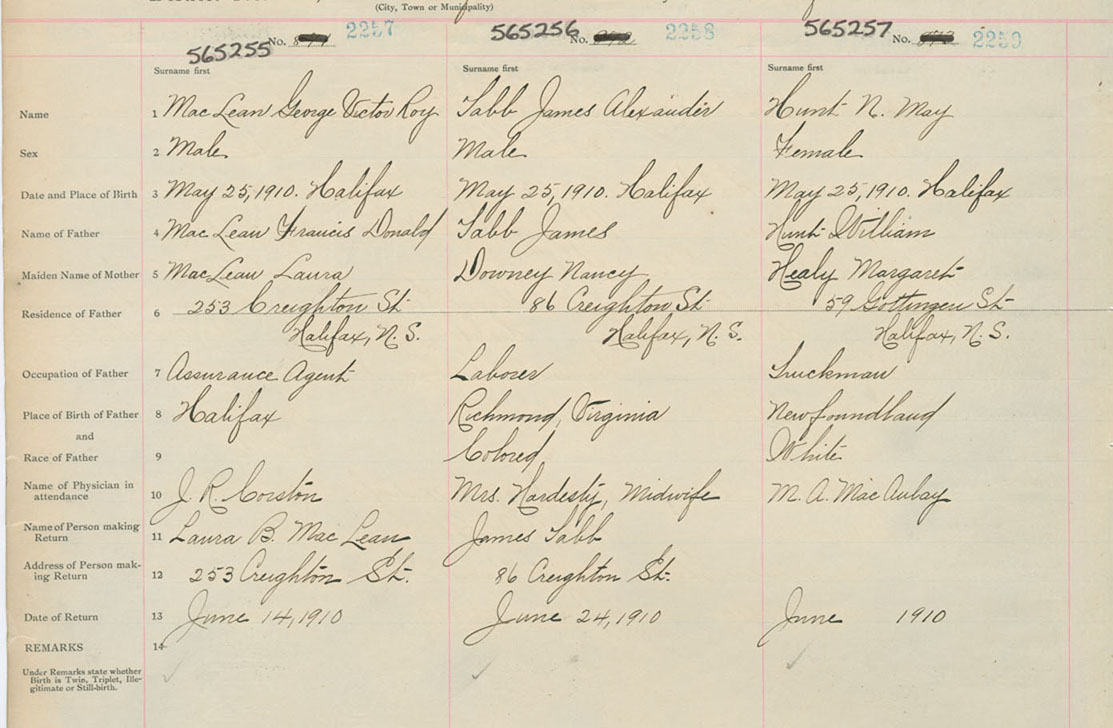 (City, Town or Municipality)
565255 No. 2257 565256 No. 2258 565257 No. 2259
Surname first Surname first Surname first
Name 1 Mac Lean George Victor Roy Tabb James Alexander Hunt N. May
Sex 2 Male Male Female
Date and Place of Birth 3 May 25, 1910. Halifax May 25, 1910. Halifax May 25, 1910. Halifax
Name of Father 4 Mac Lean Francis Donald Tabb James Hunt William
Maiden Name of Mother 5 MacLean Laura Downey Nancy Healy Margaret
Residence of Father 6 253 Creighton St 86 Creighton St 59 Gottingen St
Halifax, N. S. Halifax, N. S. Halifax, N. S.
Occupation of Father 7 Assurance Agent Laborer Truckman
Place of Birth of Father 8 Halifax Richmond, Virginia Newfoundland
and
Race of Father 9 Colored White
Name of Physician in
attendance 10 J. R. Corston Mrs. Hardesty, Midwife M. A. Mac Aulay
Name of Person making
Return 11 Laura B. Mac Lean James Tabb
Address of Person mak-
ing Return 12 253 Creighton St. 86 Creighton St.
Date of Return 13 June 14, 1910 June 24, 1910 June 1910
REMARKS 14
Under Remarks state whether
Birth is Twin, Triplet, Ille-
gitimate or Still-birth.